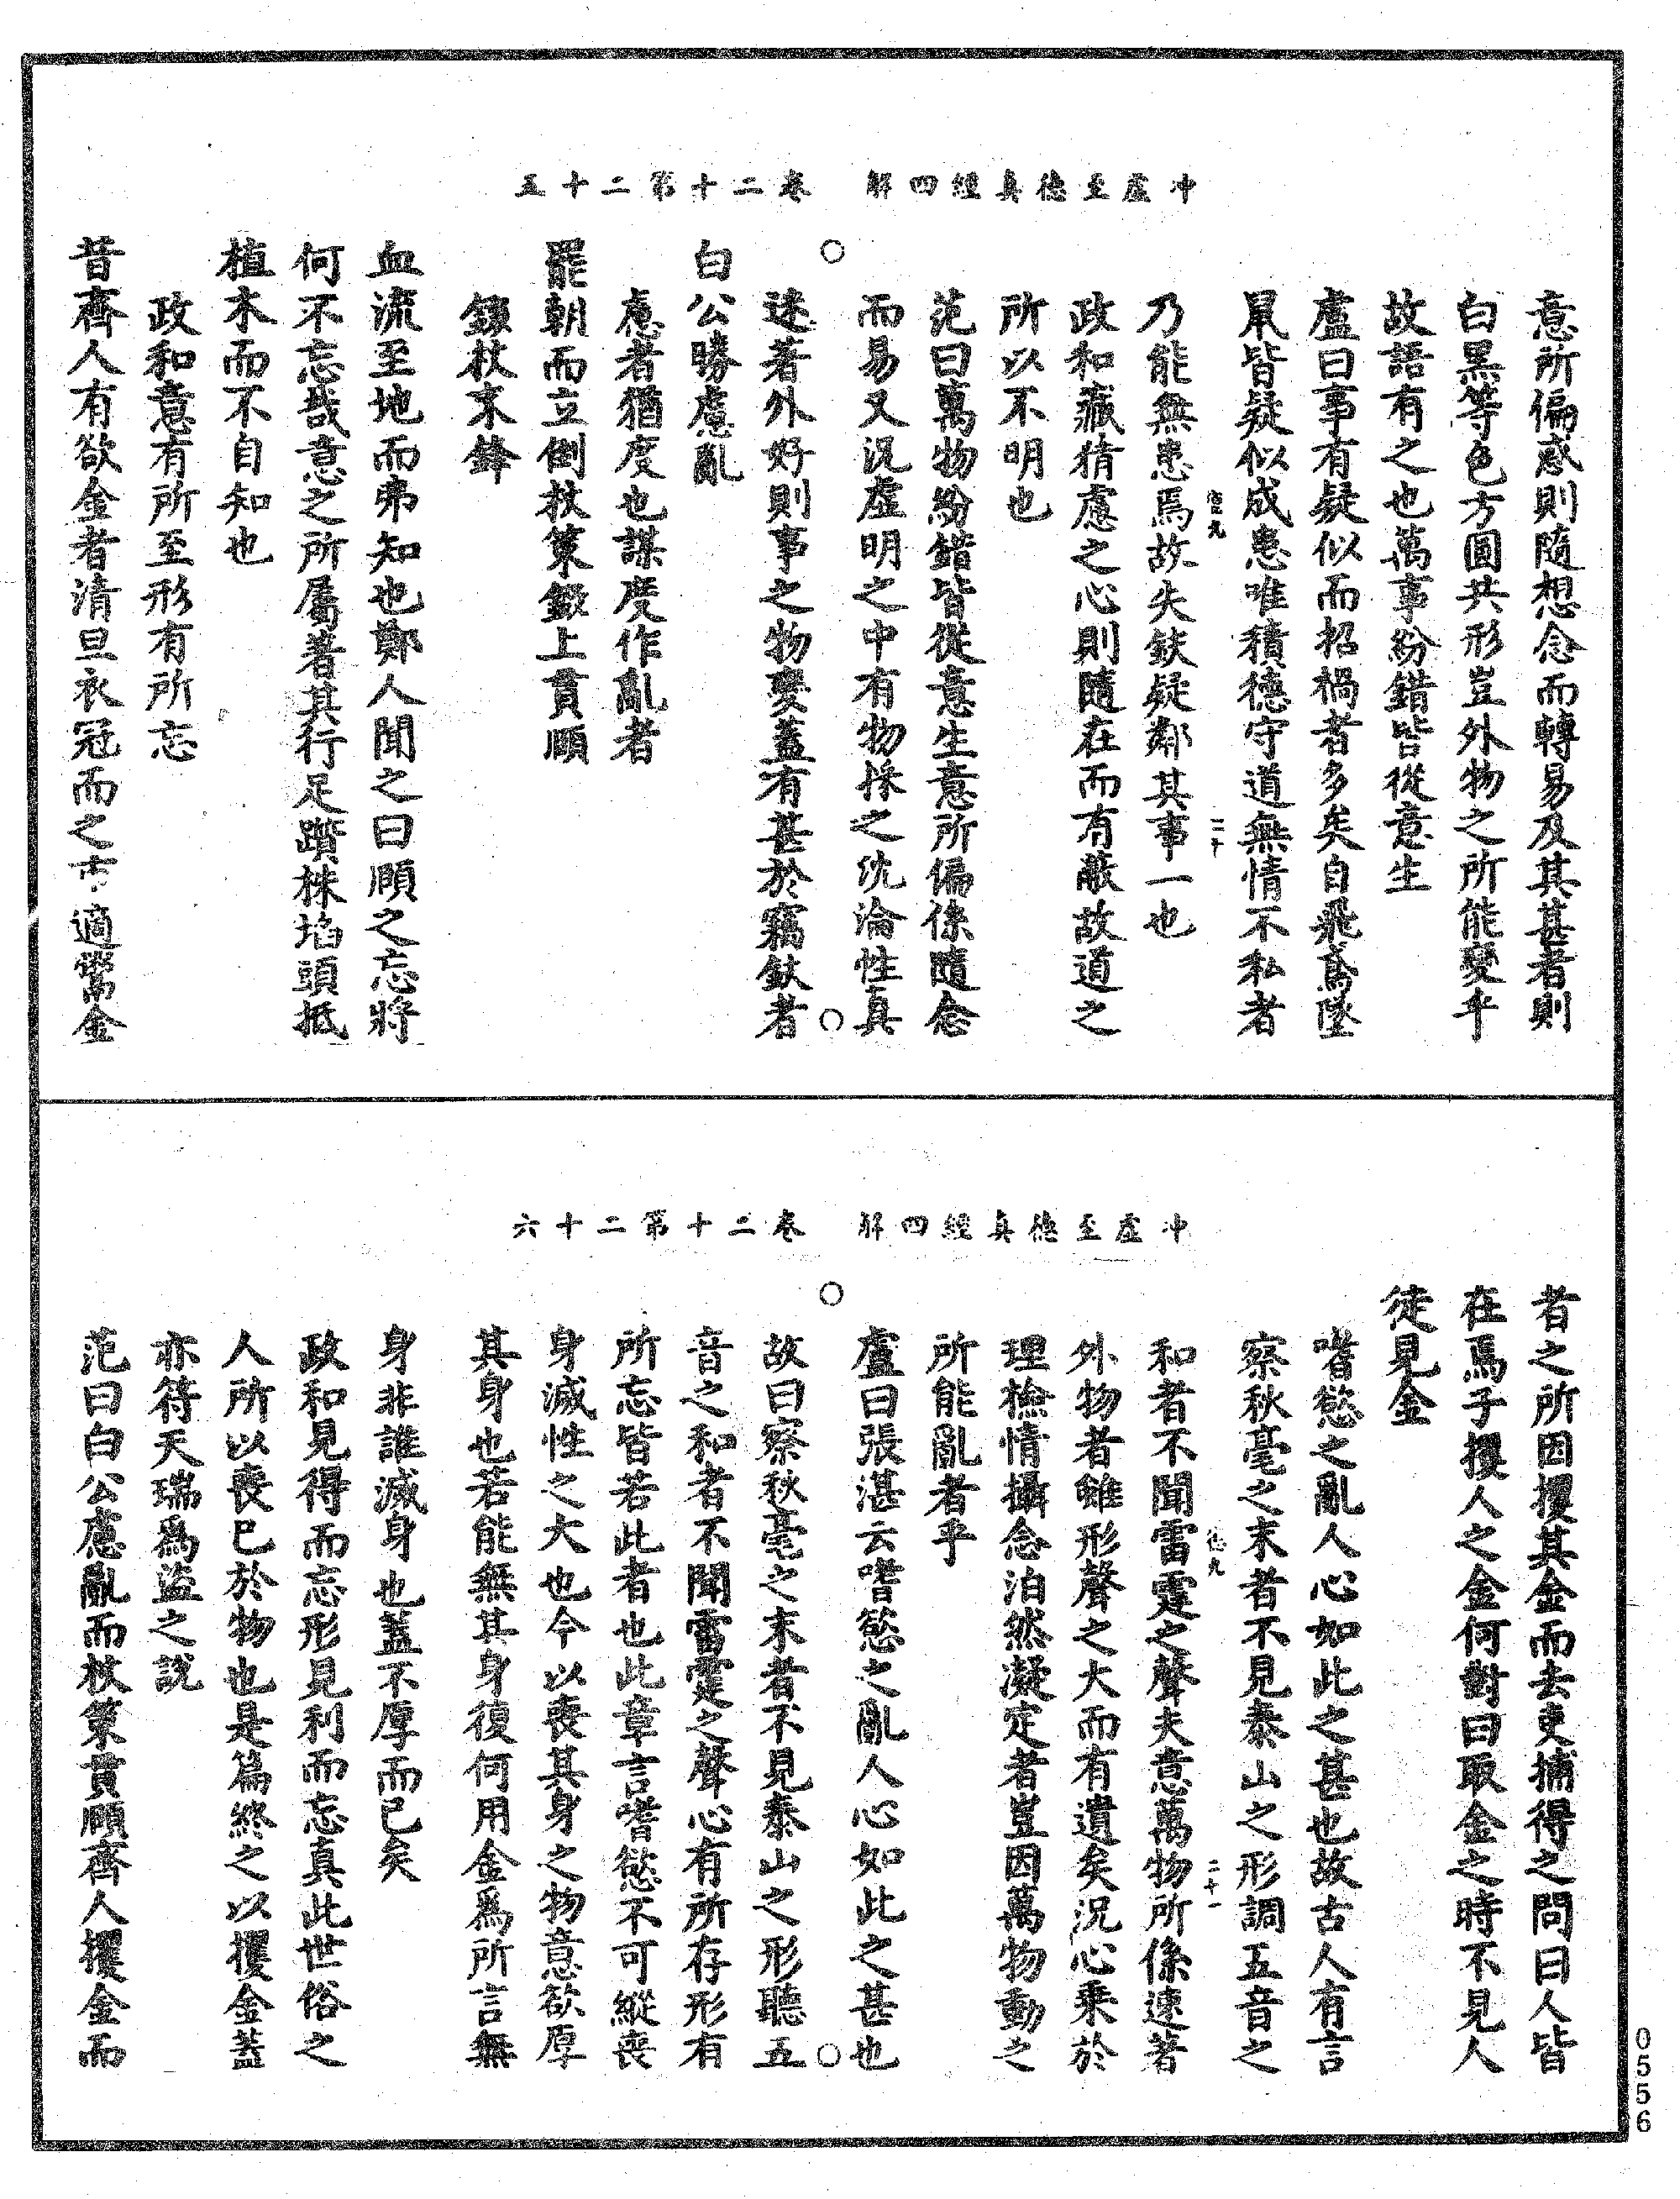 冲虛至德真經四解　卷二十第二十五
意所偏惑則隨想念而轉易及其甚者則
白黑等色方圓共形豈外物之所能變乎
故語有之也萬事紛錯皆從意生
盧曰事有疑似而招禍者多矣自飛鳶墜
鼠皆疑似成患唯積德守道無情不私者
乃能無患焉故失鈇疑鄰其事一也
二十
政和藏猜慮之心則隨在而有蔽故道之
所以不明也
范曰萬物紛錯皆從意生意所偏係隨念
而易又況虛明之中有物採之沈淪性真
迷著外好則事之物變蓋有甚於竊鈇者
白公勝慮亂
慮者猶度也謀度作亂者
罷朝而立倒杖策錣上貫頤
錣杖末鋒
血流至地而弗知也鄭人聞之曰頤之忘將
何不忘哉意之所屬著其行足躓株埳頭抵
植木而不自知也
政和意有所至形有所忘
昔齊人有欲金者清旦衣冠而之市適鬻金
冲虛至德真經四解　卷二十第二十六
者之所因攫其金而去吏捕得之問曰人皆
在焉子攫人之金何對曰取金之時不見人
徒見金
嗜慾之亂人心如此之甚也故古人有言
察秋毫之末者不見泰山之形調五音之
和者不聞雷霆之聲夫意萬物所係迷著
二十一
外物者雖形聲之大而有遺矣況心乘於
理檢情攝念泊然凝定者豈因萬物動之
所能亂者乎
盧曰張湛云嗜慾之亂人心如此之甚也
故曰察秋毫之末者不見泰山之形聽五
音之和者不聞雷霆之聲心有所存形有
所忘皆若此者也此章言嗜慾不可縱喪
身滅性之大也今以喪其身身之物意欲厚
其身也若能無其身復何用金為所言無
身非誰滅身也蓋不厚而已矣
政和見得而忘形見利而忘真此世俗之
人所以喪已於物也是篇終之以攫金蓋
亦符天瑞為盜之說
范曰白公慮亂而杖策貫頤齊人攫金而
0556